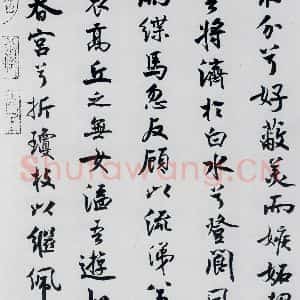 分兮好蔽美而嫉妬
將濟於白水兮登閬風
緤馬忽反顧以流涕兮
哀高丘之無女溘吾遊
春宮兮折瓊枝以繼佩
Shufawang.CN